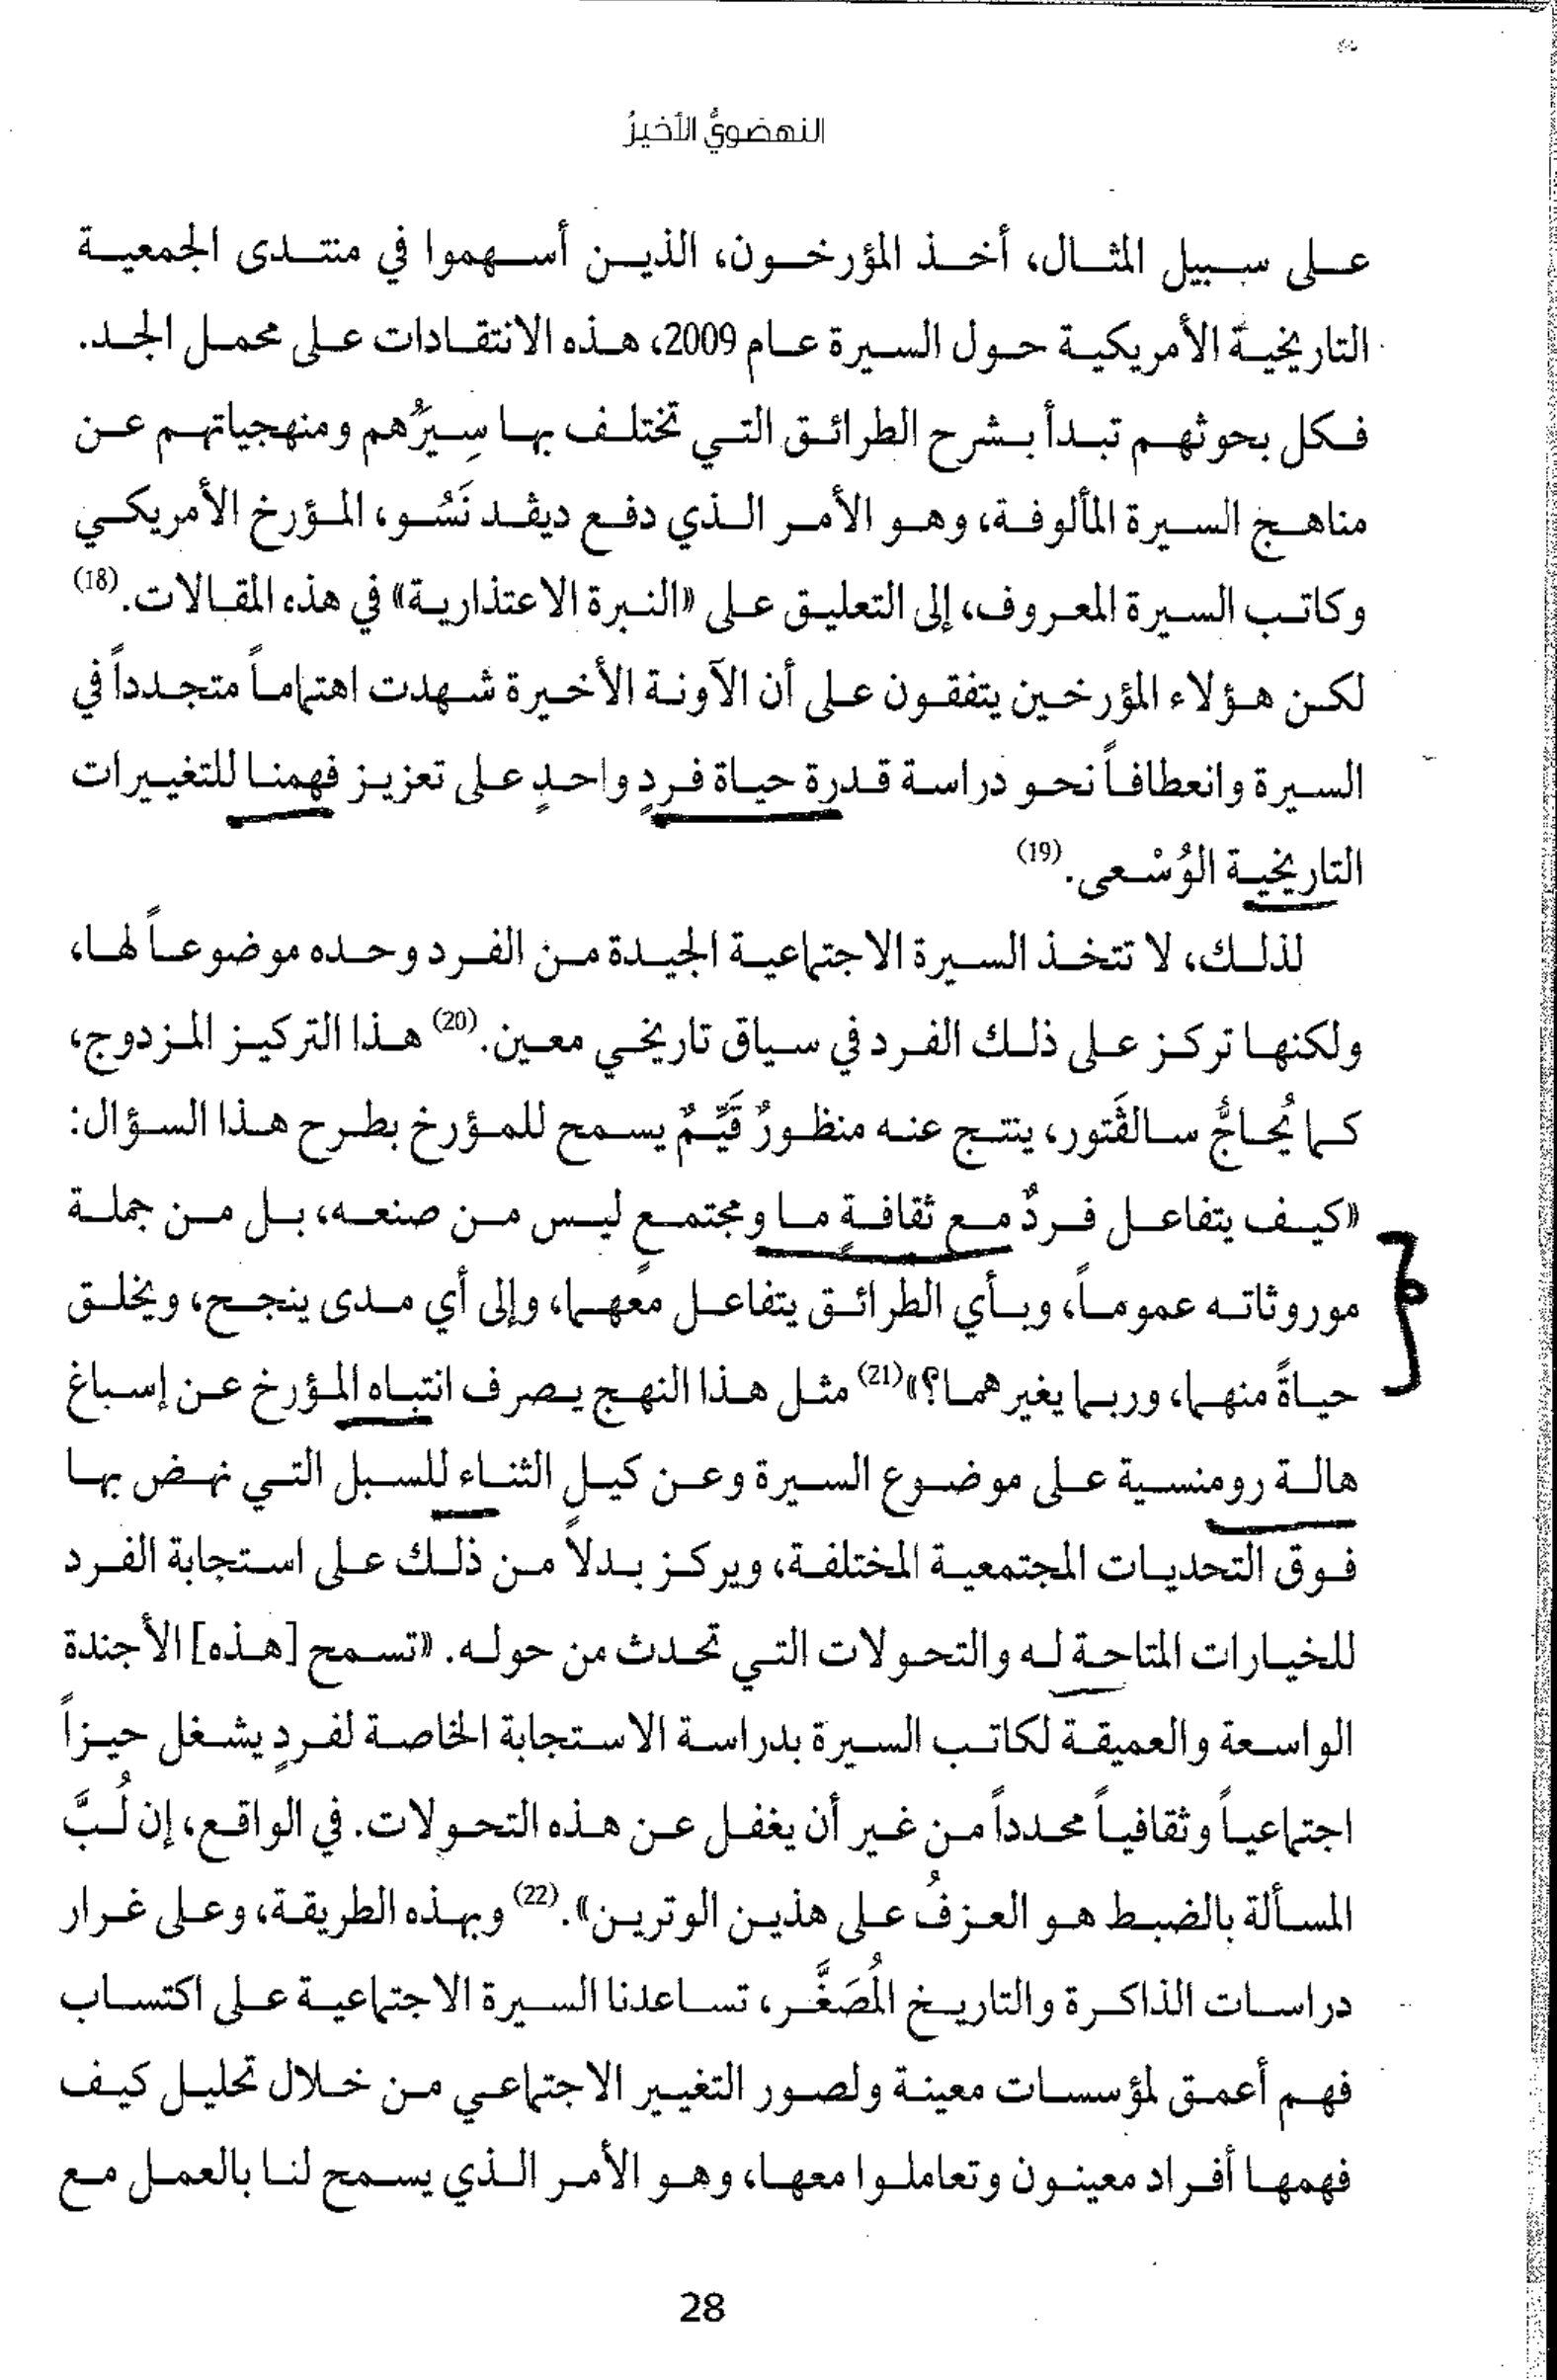 النهضويُّ الأخيرُ
على سبيل المثال، أخذ المؤرخون، الذين أسهموا في منتدى الجمعية
التاريخية الأمريكية حول السيرة عام 2009، هذه الانتقادات على محمل الجد.
فكل بحوثهم تبدأ بشرح الطرائق التي تختلف بها سِيَرُهم ومنهجياتهم عن
مناهج السيرة المألوفة، وهو الأمر الذي دفع ديڤد نَسُو، المؤرخ الأمريكي
وكاتب السيرة المعروف، إلى التعليق على «النبرة الاعتذارية» في هذه المقالات.(18)
لكن هؤلاء المؤرخين يتفقون على أن الآونة الأخيرة شهدت اهتماماً متجدداً في
السيرة وانعطافاً نحو دراسة قدرة حياة فردٍ واحدٍ على تعزيز فهمنا للتغييرات
التاريخية الوُسْعى.(19)
لذلك، لا تتخذ السيرة الاجتماعية الجيدة من الفرد وحده موضوعاً لها،
ولكنها تركز على ذلك الفرد في سياق تاريخي معين.(20) هذا التركيز المزدوج،
كما يُحاجُّ سالڤَتور، ينتج عنه منظورٌ قَيِّمٌ يسمح للمؤرخ بطرح هذا السؤال:
«كيف يتفاعل فردٌ مع ثقافةٍ ما ومجتمعٍ ليس من صنعه، بل من جملة
موروثاته عموماً، وبأي الطرائق يتفاعل معهما، وإلى أي مدى ينجح، ويخلق
حياةً منهما، وربما يغيرهما؟»(21) مثل هذا النهج يصرف انتباه المؤرخ عن إسباغ
هالة رومنسية على موضوع السيرة وعن كيل الثناء للسبل التي نهض بها
فوق التحديات المجتمعية المختلفة، ويركز بدلاً من ذلك على استجابة الفرد
للخيارات المتاحة له والتحولات التي تحدث من حوله. «تسمح [هذه] الأجندة
الواسعة والعميقة لكاتب السيرة بدراسة الاستجابة الخاصة لفردٍ يشغل حيزاً
اجتماعياً وثقافياً محدداً من غير أن يغفل عن هذه التحولات. في الواقع، إن لُبَّ
المسألة بالضبط هو العزفُ على هذين الوترين».(22) وبهذه الطريقة، وعلى غرار
دراسات الذاكرة والتاريخ المُصَغَّر، تساعدنا السيرة الاجتماعية على اكتساب
فهم أعمق لمؤسسات معينة ولصور التغيير الاجتماعي من خلال تحليل كيف
فهمها أفراد معينون وتعاملوا معها، وهو الأمر الذي يسمح لنا بالعمل مع
28